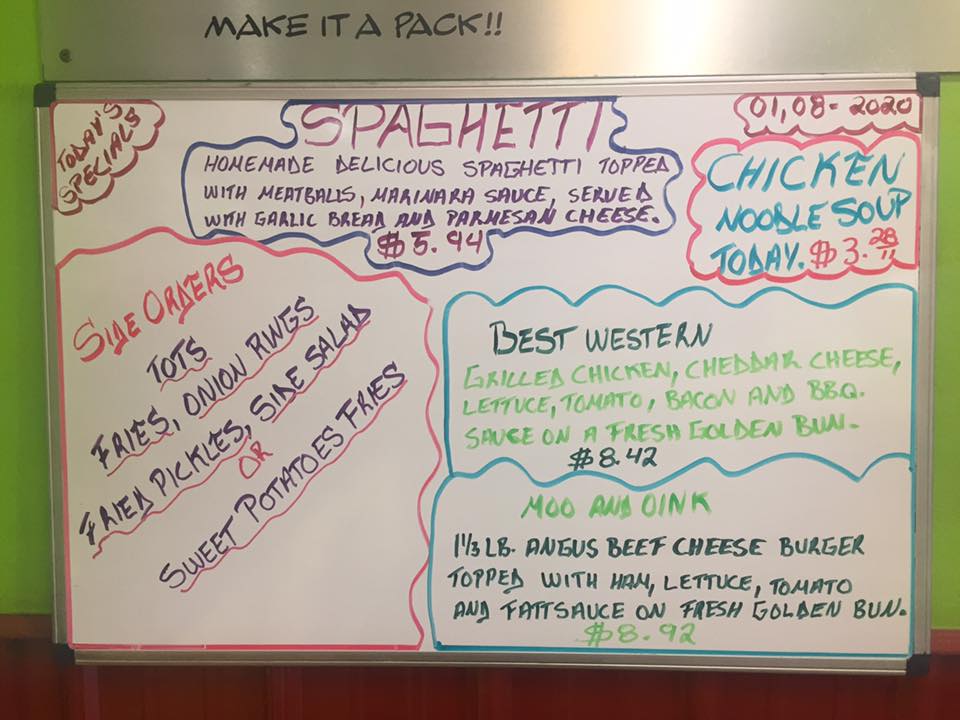 MAKE IT A PACK!!
TODAY'S
SPECIALS
SPAGHETTI
HOMEMADE DELICIOUS SPAGHETTI TOPPED
WITH MEATBALLS, MARINARA SAUCE, SERVED
WITH GARLIC BREAD AND PARMESAN CHEESE.
$5.94
01,08-2020
CHICKEN
NOODLE SOUP
TODAY. $3.28
SIDE ORDERS
TOTS
FRIES, ONION RINGS
FRIED PICKLES, SIDE SALAD
OR
SWEET POTATOES FRIES
BEST WESTERN
GRILLED CHICKEN, CHEDDAR CHEESE,
LETTUCE, TOMATO, BACON AND BBQ.
SAUCE ON A FRESH GOLDEN BUN.
$8.42
MOO AND OINK
1 1/3 LB. ANGUS BEEF CHEESE BURGER
TOPPED WITH HAM, LETTUCE, TOMATO
AND FATTSAUCE ON FRESH GOLDEN BUN.
$8.92